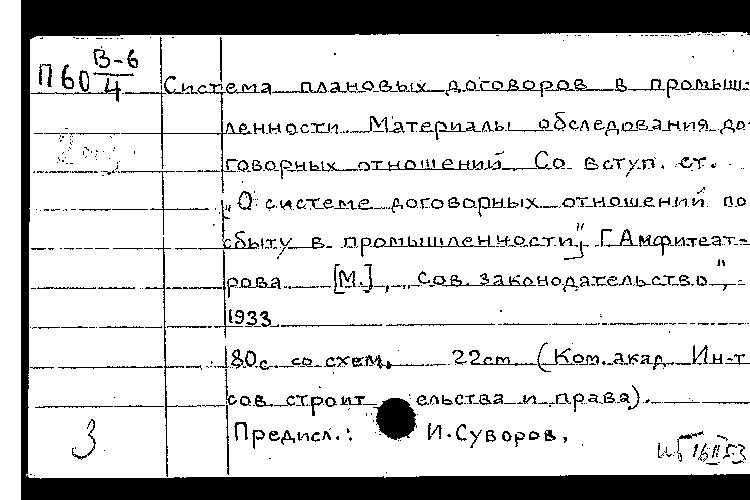 П60 В-6/4
Система плановых договоров в промыш-
ленности. Материалы обследования до-
говорных отношений. Со вступ. ст.
„О системе договорных отношений по
сбыту в промышленности" Г. Амфитеат-
рова. [М.], „Сов. законодательство",
1933
80с. со схем. 22см. (Ком. акад. Ин-т
сов. строительства и права).
Предисл.: И. Суворов.
3